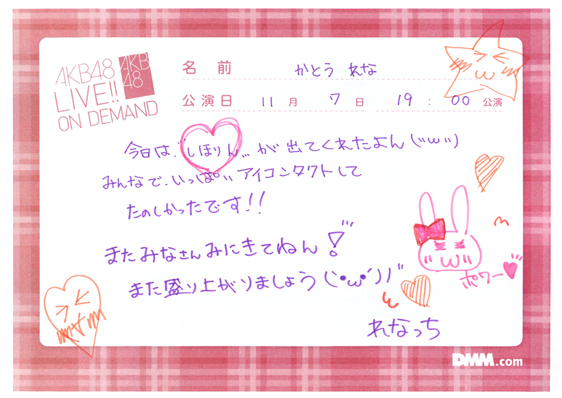 AKB48
LIVE!!
ON DEMAND
AKB
48
名前 かとう れな
公演日 11月 7日 19:00 公演
今日は、"しほりん"が出てくれたよん(*'ω'*)
みんなで、いっぱいアイコンタクトして
たのしかったです!!
またみなさんみにきてねん!
また盛り上がりましょう(*•ω•*)ノ"
ポワー
れなっち
DMM.com